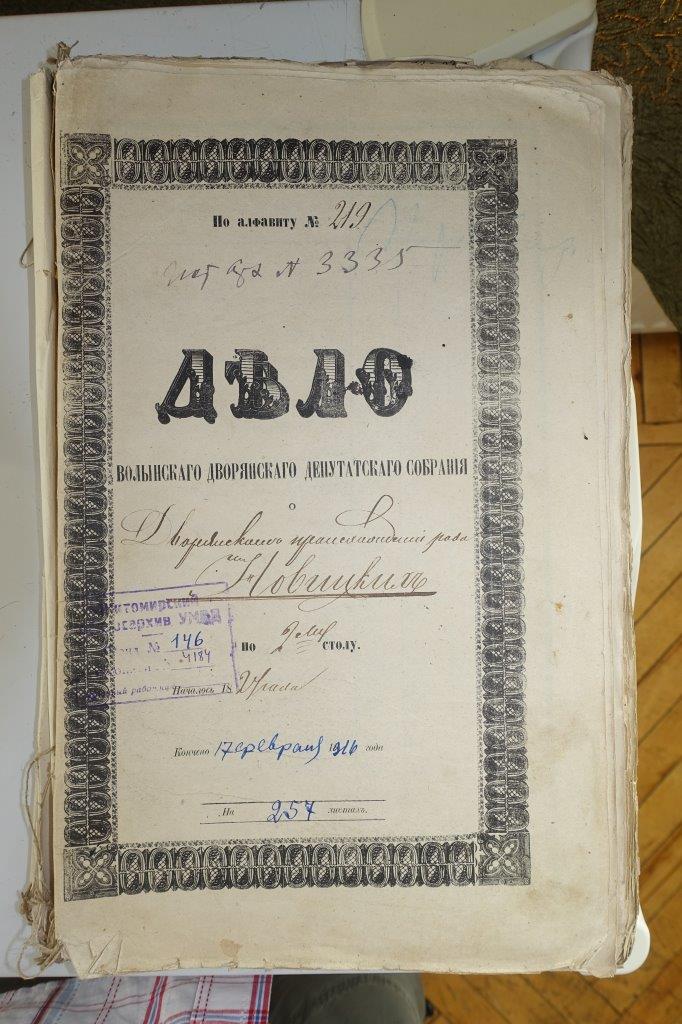 По алфавиту № 219
№ 3335
ДѢЛО
ВОЛЫНСКАГО ДВОРЯНСКАГО ДЕПУТАТСКАГО СОБРАНІЯ
О
Дворянскомъ происхожденіи рода
Новицкихъ
Житомирский
Госархив УМВД
№ 146
4184
По 2 му столу.
Началось 18 года
Кончено 17 февраля 1916 года
На 257 листахъ.